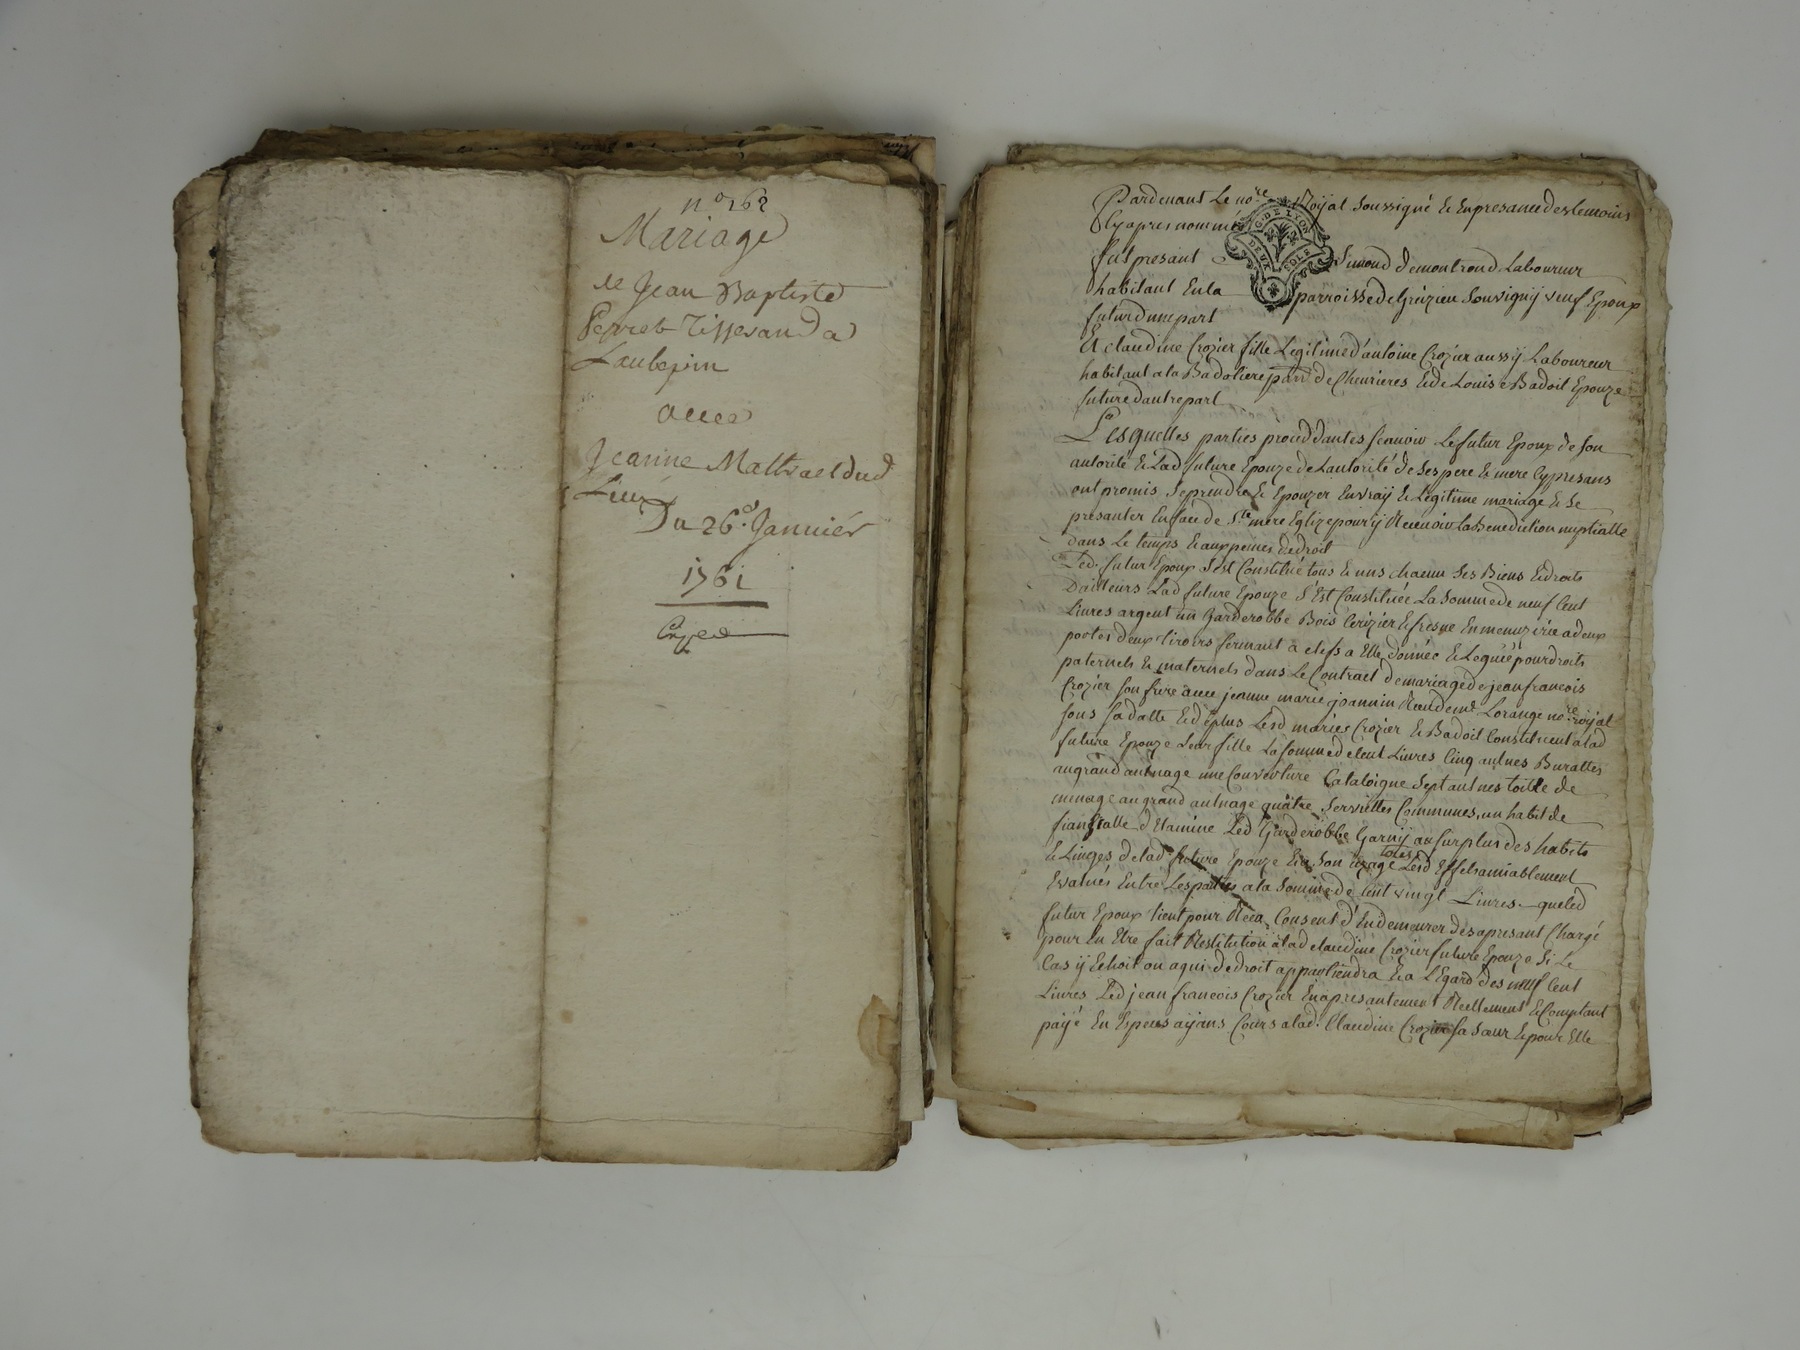 n.º 262
Mariage
de Jean Baptiste
Perret Tisserand a
Laubepin
avec
Jeanne Mathvael dud
Lieu
Du 26.e Janvier
1761
Expee
Pardevant Le no.re Roÿal Soussigné & En presance des temoins
Cy apres nommés
G. DE LYON
DEUX SOLS
fut presant Simond demontrond Laboureur
habitant En la parroisse de Grézieu Souvignÿ veuf Epoux
futur dune part
Et claudine Crozier fille Legitime d'antoine Crozier aussÿ Laboureur
habitant a la Badoliere parr. de Chevrieres & de Louise Badoit Epouze
future dautre part
Lesquelles parties proceddantes scavoir Le futur Epoux de Son
autorité & Lad future Epouze de Lautorité de Ses pere & mere Cy presans
ont promis Se prendre & Epouzer En vraÿ & Legitime mariage & Se
presanter En face de S.te mere Eglize pour ÿ Recevoir La Benediction nuptialle
dans Le temps & aux peines de droit
Led. futur Epoux S'est Constitué tous & uns chacun Ses Biens & droits
Dailleurs Lad future Epouze S'Est Constituée La Somme de neuf Cent
Livres argent un Garderobbe Bois Cerizier & fresne En menuzirie a deux
portes deux tiroirs fermant à clefs a Elle donnée & Leguée pour droits
paternels & maternels dans Le Contract de mariage de jean francois
Crozier Son frere avec jeanne marie joannin Receu dem.t Lorange no.re roÿal
Sous Sa datte & de plus Lesd mariés Crozier & Badoit Constituent a lad
future Epouze Leur fille La Somme de Cent Livres Cinq aulnes Burattes
au grand aulnage une Couverture Cataloigne Sept aulnes toille de
menage au grand aulnage quatre Serviettes Communes, un habit de
fiansialle d'Etamine Led Garderobbe Garnÿ au Surplus des habits
& Linges de lad future Epouze En Son uzage tous Lesd Effets amiablement
Evalués Entre Les parties a la Somme de Cent vingt Livres. que led
futur Epoux tient pour Receu Consent d'En demeurer des apresant Chargé
pour En Etre fait Restitution a lad claudine Crozier future Epouze Si Le
Cas ÿ Echoit ou a qui de droit appartiendra & a L'Egard des neuf Cent
Livres Led jean francois Crozier En a presantement Reellement & Comptant
païé En Especes aÿans Cours a lad. Claudine Crozier Sa Sœur & pour Elle